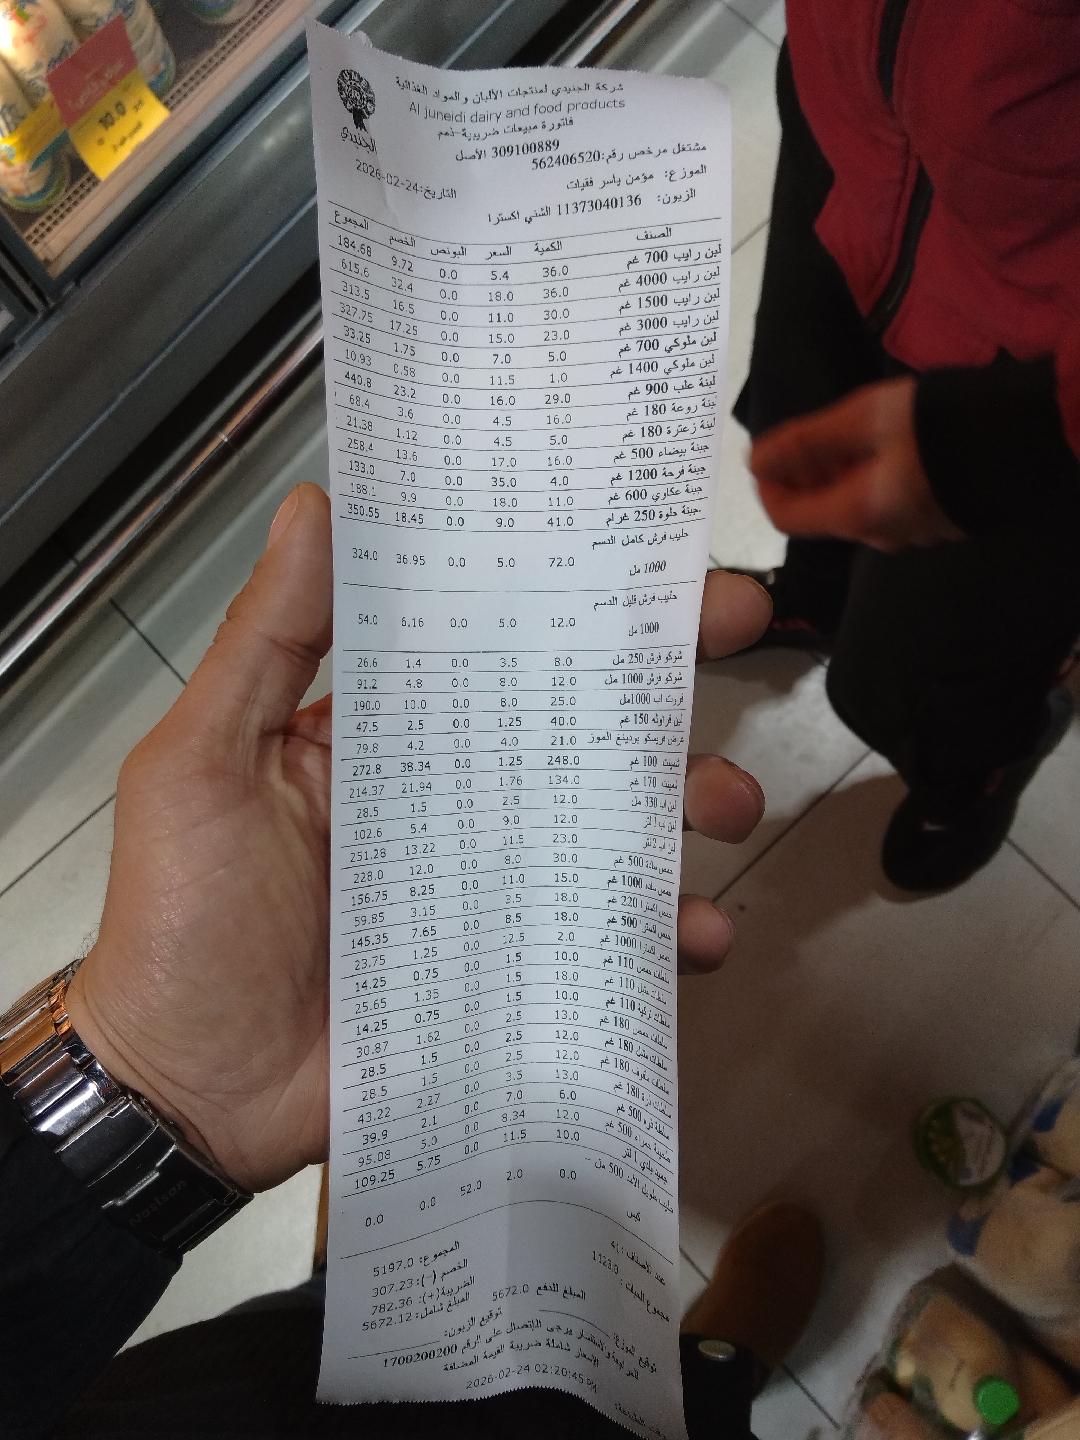 شركة الجنيدي لمنتجات الألبان والمواد الغذائية
Al juneidi dairy and food products
فاتورة مبيعات ضريبية-ذمم
الجنيدي
309100889 الأصل
مشتغل مرخص رقم:562406520
التاريخ:2026-02-24
الموزع: مؤمن ياسر فقيات
الزبون: 11373040136 الشني اكسترا
الصنف الكمية السعر البونص الخصم المجموع
لبن رايب 700 غم 36.0 5.4 0.0 9.72 184.68
لبن رايب 4000 غم 36.0 18.0 0.0 32.4 615.6
لبن رايب 1500 غم 30.0 11.0 0.0 16.5 313.5
لبن رايب 3000 غم 23.0 15.0 0.0 17.25 327.75
لبن ملوكي 700 غم 5.0 7.0 0.0 1.75 33.25
لبن ملوكي 1400 غم 1.0 11.5 0.0 0.58 10.93
لبنة علب 900 غم 29.0 16.0 0.0 23.2 440.8
لبنة روعة 180 غم 16.0 4.5 0.0 3.6 68.4
لبنة زعترة 180 غم 5.0 4.5 0.0 1.12 21.38
جبنة بيضاء 500 غم 16.0 17.0 0.0 13.6 258.4
جبنة فرحة 1200 غم 4.0 35.0 0.0 7.0 133.0
جبنة عكاري 600 غم 11.0 18.0 0.0 9.9 188.1
جبنة حلوة 250 غرام 41.0 9.0 0.0 18.45 350.55
حليب فرش كامل الدسم
1000 مل 72.0 5.0 0.0 36.95 324.0
حليب فرش قليل الدسم
1000 مل 12.0 5.0 0.0 6.16 54.0
شوكو فرش 250 مل 8.0 3.5 0.0 1.4 26.6
شوكو فرش 1000 مل 12.0 8.0 0.0 4.8 91.2
فروت اب 1000مل 25.0 8.0 0.0 10.0 190.0
لبن فراوله 150 غم 40.0 1.25 0.0 2.5 47.5
عرض فريسكو بردينغ الموز 21.0 4.0 0.0 4.2 79.8
شمينت 100 غم 248.0 1.25 0.0 38.34 272.8
شمينت 170 غم 134.0 1.76 0.0 21.94 214.37
لبن اب 330 مل 12.0 2.5 0.0 1.5 28.5
لبن اب 1 لتر 12.0 9.0 0.0 5.4 102.6
لبن اب 2 لتر 23.0 11.5 0.0 13.22 251.28
حمص سادة 500 غم 30.0 8.0 0.0 12.0 228.0
حمص سادة 1000 غم 15.0 11.0 0.0 8.25 156.75
حمص اكسترا 220 غم 18.0 3.5 0.0 3.15 59.85
حمص اكسترا 500 غم 18.0 8.5 0.0 7.65 145.35
حمص اكسترا 1000 غم 2.0 12.5 0.0 1.25 23.75
سلطات حمص 110 غم 10.0 1.5 0.0 0.75 14.25
سلطات متبل 110 غم 18.0 1.5 0.0 1.35 25.65
سلطات تركية 110 غم 10.0 1.5 0.0 0.75 14.25
سلطات حمص 180 غم 13.0 2.5 0.0 1.62 30.87
سلطات متبل 180 غم 12.0 2.5 0.0 1.5 28.5
سلطات ملفوف 180 غم 12.0 2.5 0.0 1.5 28.5
سلطات ذرة 180 غم 13.0 3.5 0.0 2.27 43.22
سلطة ذرة 500 غم 6.0 7.0 0.0 2.1 39.9
500 غم 12.0 8.34 0.0 5.0 95.08
جميد بلدي 1 لتر 10.0 11.5 0.0 5.75 109.25
حليب طويل الأمد 500 مل
كيس 0.0 2.0 52.0 0.0 0.0
المجموع: 5197.0
عدد الأصناف: 41
الخصم (-): 307.23
مجموع الحبات: 1123.0
الضريبة(+): 782.36
المبلغ للدفع 5672.0
المبلغ شامل: 5672.12
توقيع الموزع:
توقيع الزبون:
للمراجعة والاستفسار يرجى الاتصال على الرقم 1700200200
الأسعار شاملة ضريبة القيمة المضافة
2026-02-24 02:20:45 PM
10.0
Navison